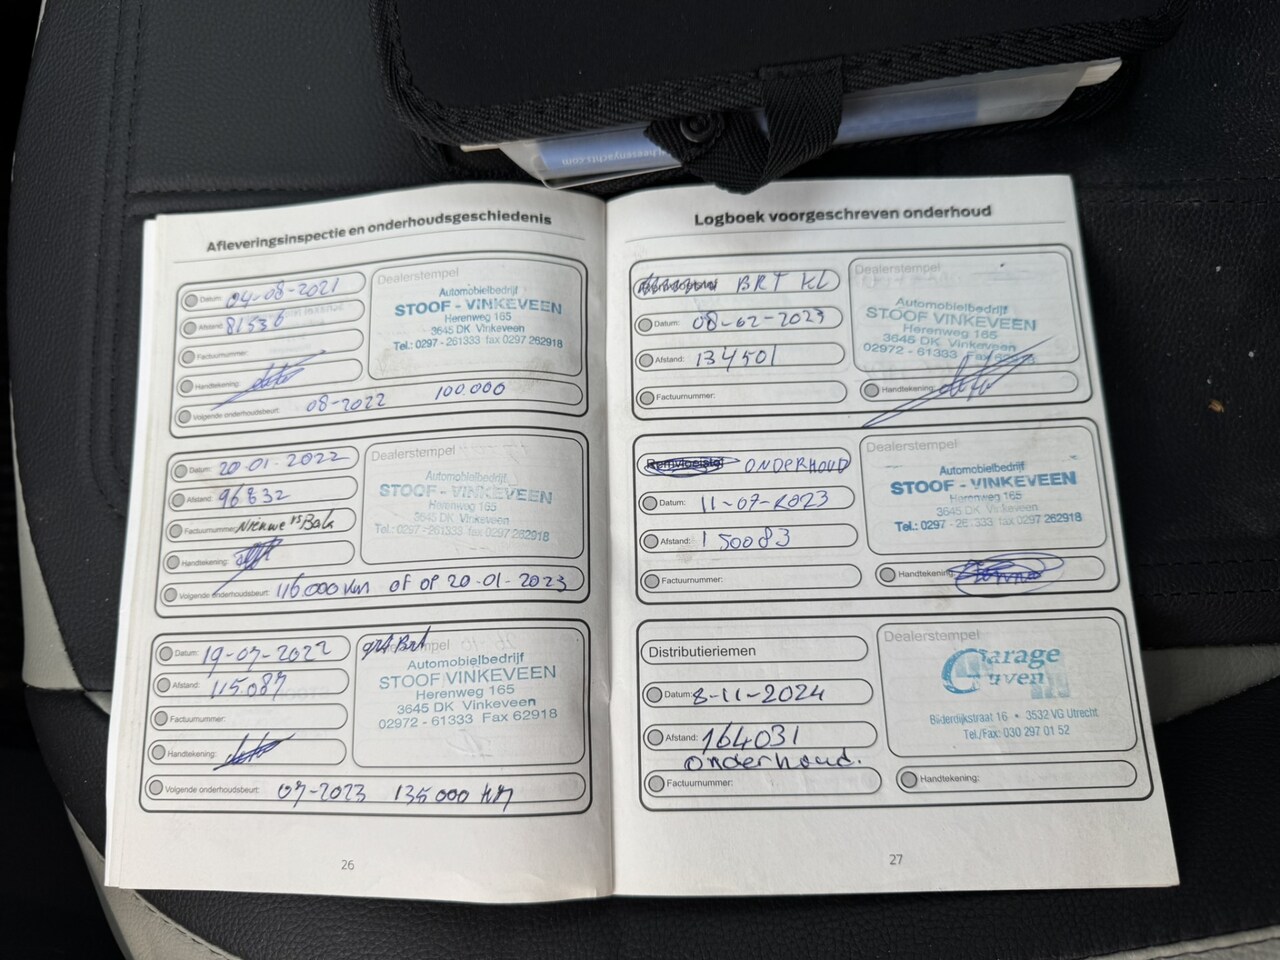 heerenyachts.com
Afleveringsinspectie en onderhoudsgeschiedenis
Datum: 04-08-2021
Afstand: 81536
Factuurnummer:
Handtekening:
Volgende onderhoudsbeurt: 08-2022 100.000
Dealerstempel
Automobielbedrijf
STOOF - VINKEVEEN
Herenweg 165
3645 DK Vinkeveen
Tel.: 0297 - 261333 fax 0297 262918
Datum: 20-01-2022
Afstand: 96832
Factuurnummer: Nieuwe
Handtekening:
Volgende onderhoudsbeurt: 116000 km of op 20-01-2023
Dealerstempel
Automobielbedrijf
STOOF - VINKEVEEN
Herenweg 165
3645 DK Vinkeveen
Tel.: 0297 - 261333 fax 0297 262918
Datum: 19-07-2022
Afstand: 115087
Factuurnummer:
Handtekening:
Volgende onderhoudsbeurt: 07-2023 135000 km
Automobielbedrijf
STOOF VINKEVEEN
Herenweg 165
3645 DK Vinkeveen
02972 - 61333 Fax 62918
26
Logboek voorgeschreven onderhoud
BRT KL
Datum: 08-02-2023
Afstand: 134501
Factuurnummer:
Dealerstempel
Automobielbedrijf
STOOF VINKEVEEN
Herenweg 165
3645 DK Vinkeveen
02972 - 61333 Fax
Handtekening:
Remvloeistof ONDERHOUD
Datum: 11-07-2023
Afstand: 150083
Factuurnummer:
Dealerstempel
Automobielbedrijf
STOOF - VINKEVEEN
Herenweg 165
3645 DK Vinkeveen
Tel.: 0297 - 261333 fax 0297 262918
Handtekening:
Distributieriemen
Datum: 8-11-2024
Afstand: 164031
onderhoud.
Factuurnummer:
Dealerstempel
Garage
Bilderdijkstraat 16 • 3532 VG Utrecht
Tel./Fax: 030 297 01 52
Handtekening:
27